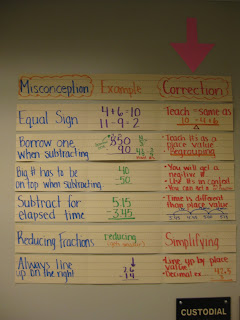 Misconception Example Correction
Equal Sign
4+6=10
11-9=2
Teach = same as
10 = 4+6
Borrow one
when subtracting
Teach it as a
place value
Regrouping
Big # has to be
on top when subtracting
40
-50
You will get a
negative #.
Use #s in context
You can get a
Subtract for
elapsed time
5:15
-3:45
Time is different
than place value
Reducing Fractions
reducing
Simplifying
Always line
up on the right
Line up by place
value
Decimal ex.
CUSTODIAL